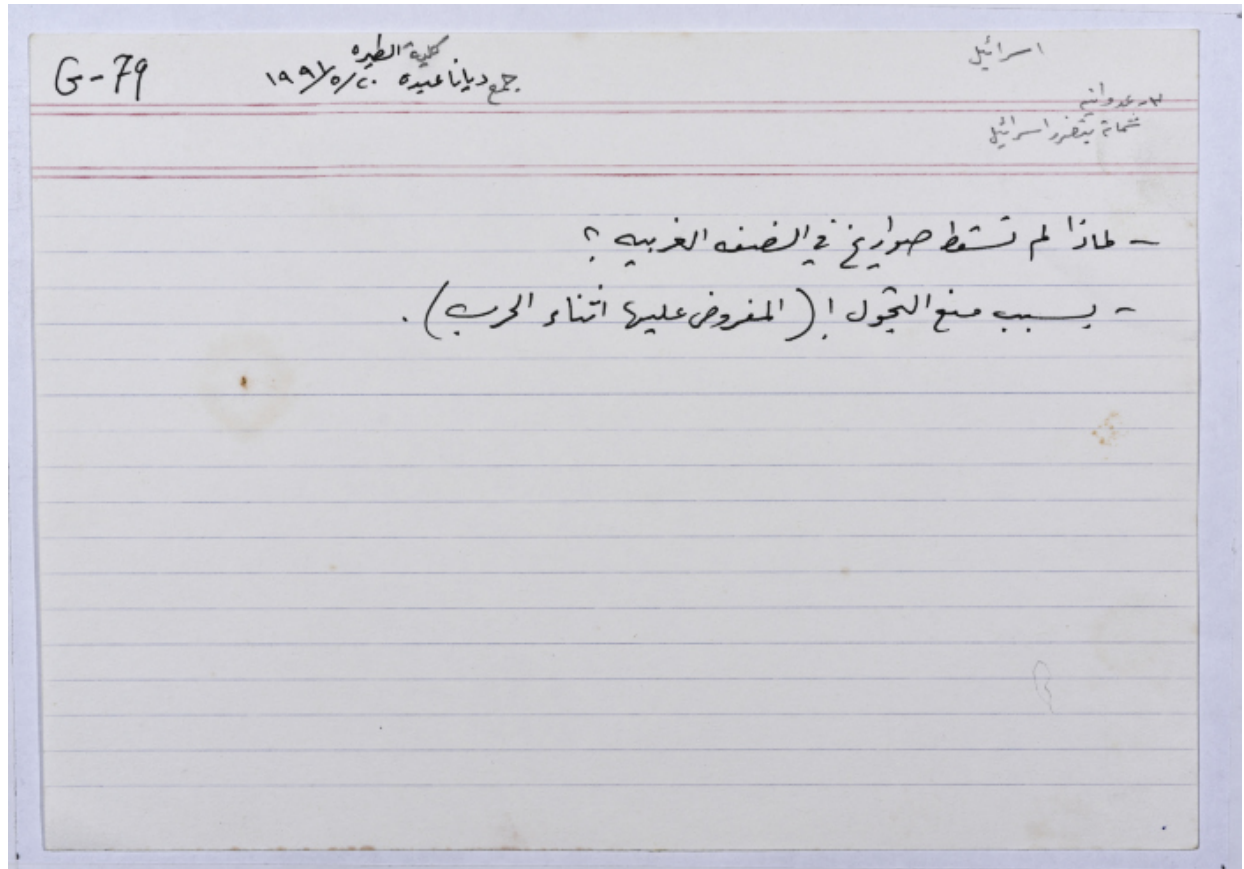 اسرائيل
كلية الطيره
G-79
جمع ديانا عبده ٢٠/٥/١٩٩١
٣- عدوانيه
شماتة بتضرر اسرائيل
- لماذا لم تسقط صواريخ في الضفه الغربيه ؟
- بسبب منع التجول ! (المفروض عليها اثناء الحرب).